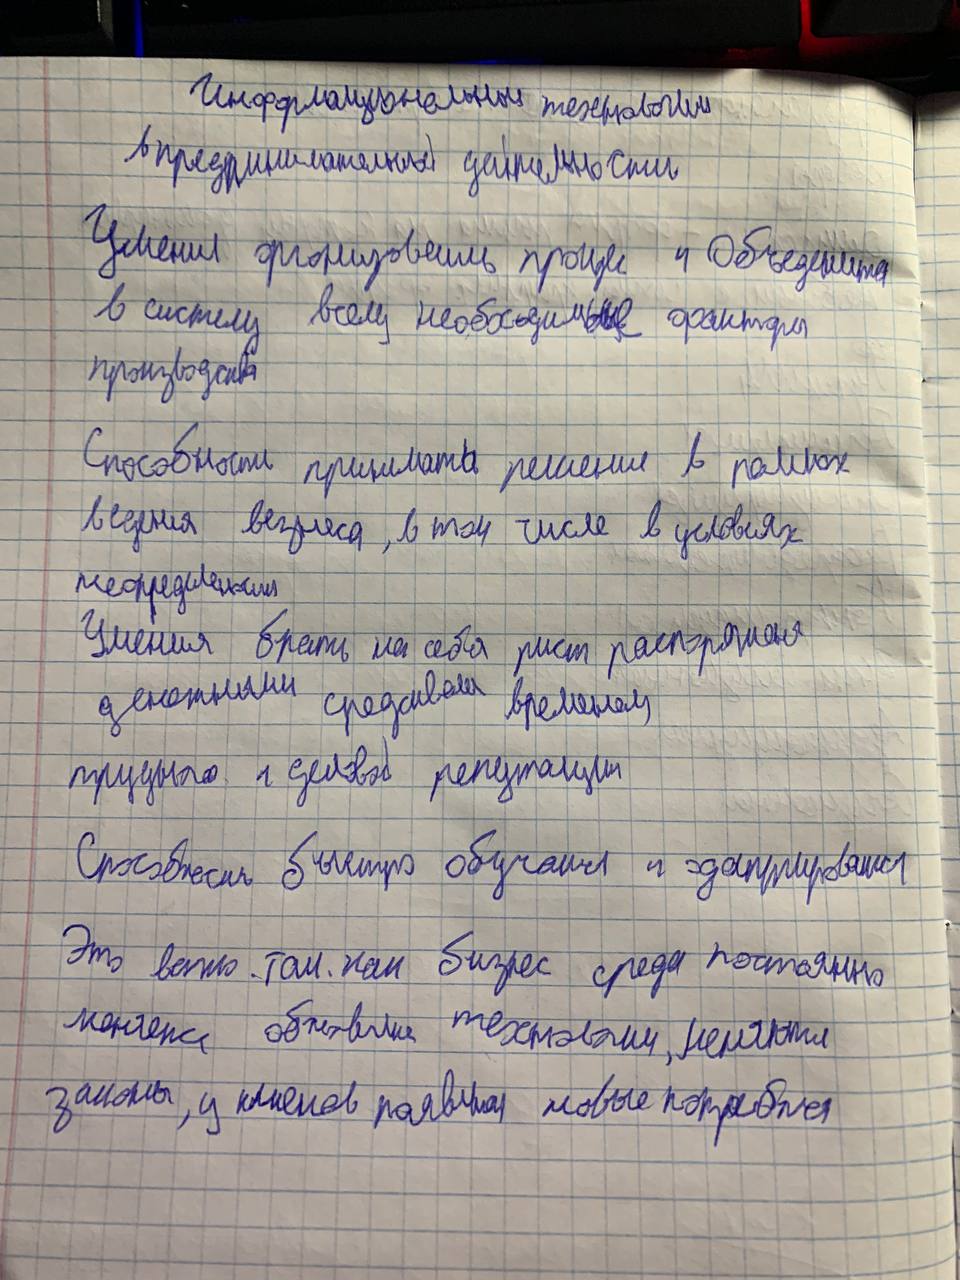 Информационный технологии
в предпринимательной деятельности
Умения организовать процес и Объеденита
в систему всему необходимые факторы
производства
Способности принимать решения в рамках
ведения безнеса, в том числе в условиях
неопределености
Умения брать на себя риск распоряжения
денежными средствами временем
трудного и деловой репутации
Способность быстро обучатся и адаптироватся
Это важно. так. как бизнес среда постоянно
меняется обновления технологии, меняются
законы, у клиенов появятся новые потребности